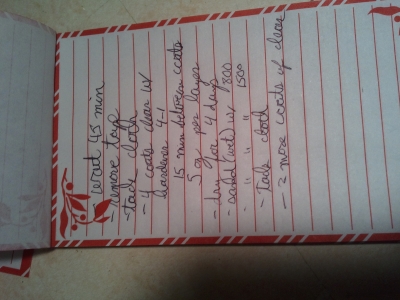 wait 45 min
- remove tape
- tack cloth
- 4 coats clear w/
hardener 4-1
15 min between coats
5 oz per layer
- dry for 4 days
- sand (wet) w/ 800
" " " 1500
- tack cloth
- 2 more coats of clear